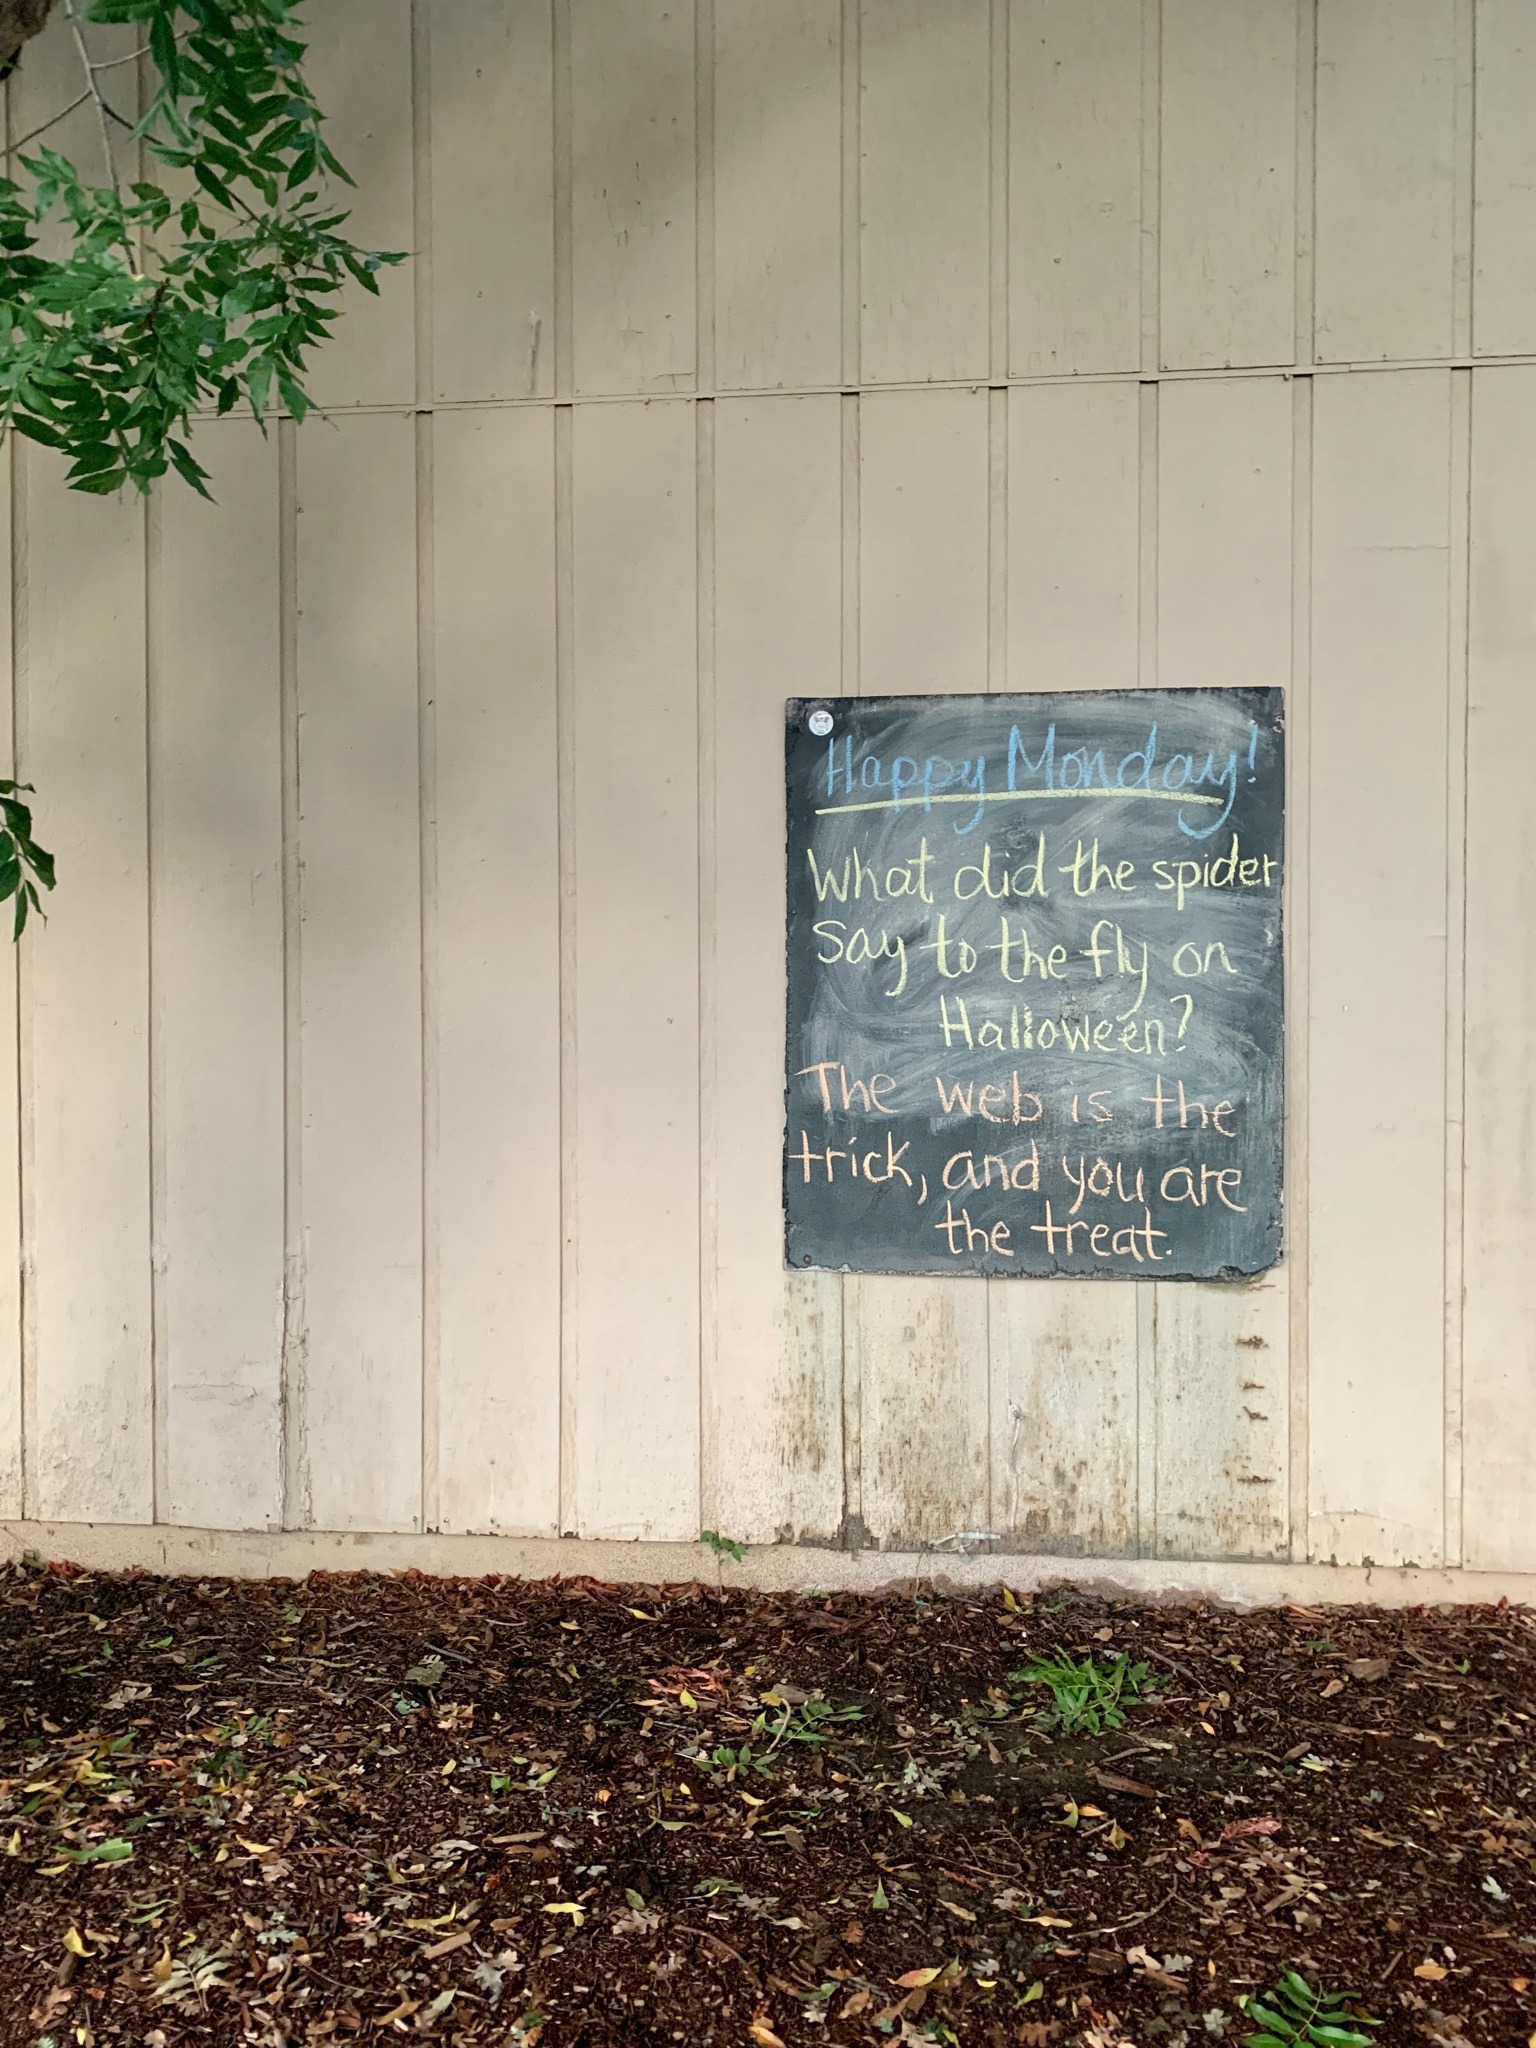 Happy Monday!
What did the spider
say to the fly on
Halloween?
The web is the
trick, and you are
the treat.